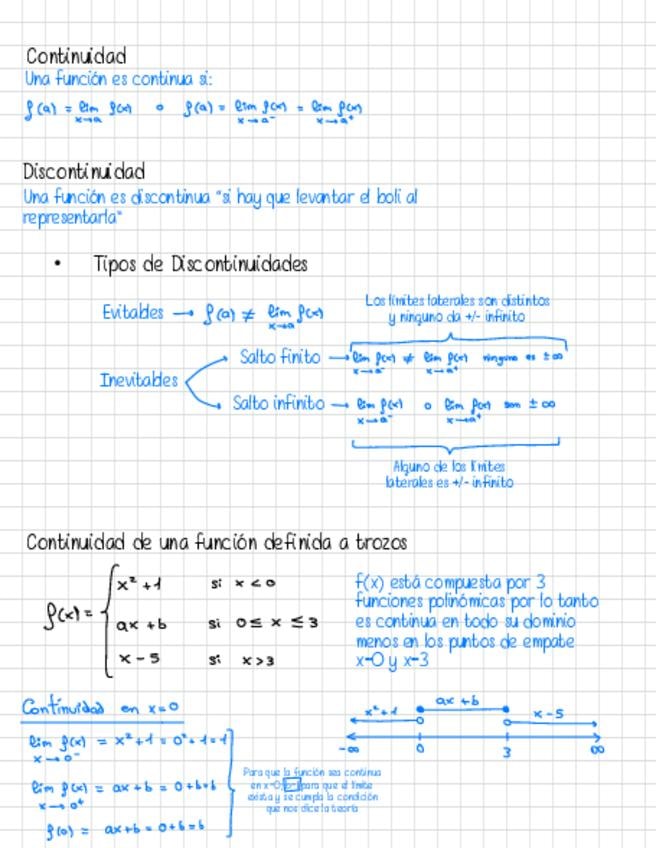 Continuidad
Una función es continua si:
f(a) = lim f(x) o f(a) = lim f(x) = lim f(x)
x→a x→a⁻ x→a⁺
Discontinuidad
Una función es discontinua "si hay que levantar el boli al
representarla"
• Tipos de Discontinuidades
Los límites laterales son distintos
y ninguno da +/- infinito
Evitables → f(a) ≠ lim f(x)
x→a
Salto finito → lim f(x) ≠ lim f(x) ninguno es ±∞
x→a⁻ x→a⁺
Inevitables
Salto infinito → lim f(x) o lim f(x) son ±∞
x→a⁻ x→a⁺
Alguno de los límites
laterales es +/- infinito
Continuidad de una función definida a trozos
x² + 1 si x < 0
f(x) = ax + b si 0 ≤ x ≤ 3
x - 5 si x > 3
f(x) está compuesta por 3
funciones polinómicas por lo tanto
es continua en todo su dominio
menos en los puntos de empate
x=0 y x=3
Continuidad en x=0
lim f(x) = x² + 1 = 0² + 1 = 1
x→0⁻
lim f(x) = ax + b = 0 + b = b
x→0⁺
f(0) = ax + b = 0 + b = b
Para que la función sea continua
en x=0, para que el límite
exista y se cumpla la condición
que nos dice la teoría
x² + 1 ax + b x - 5
-∞ 0 3 ∞